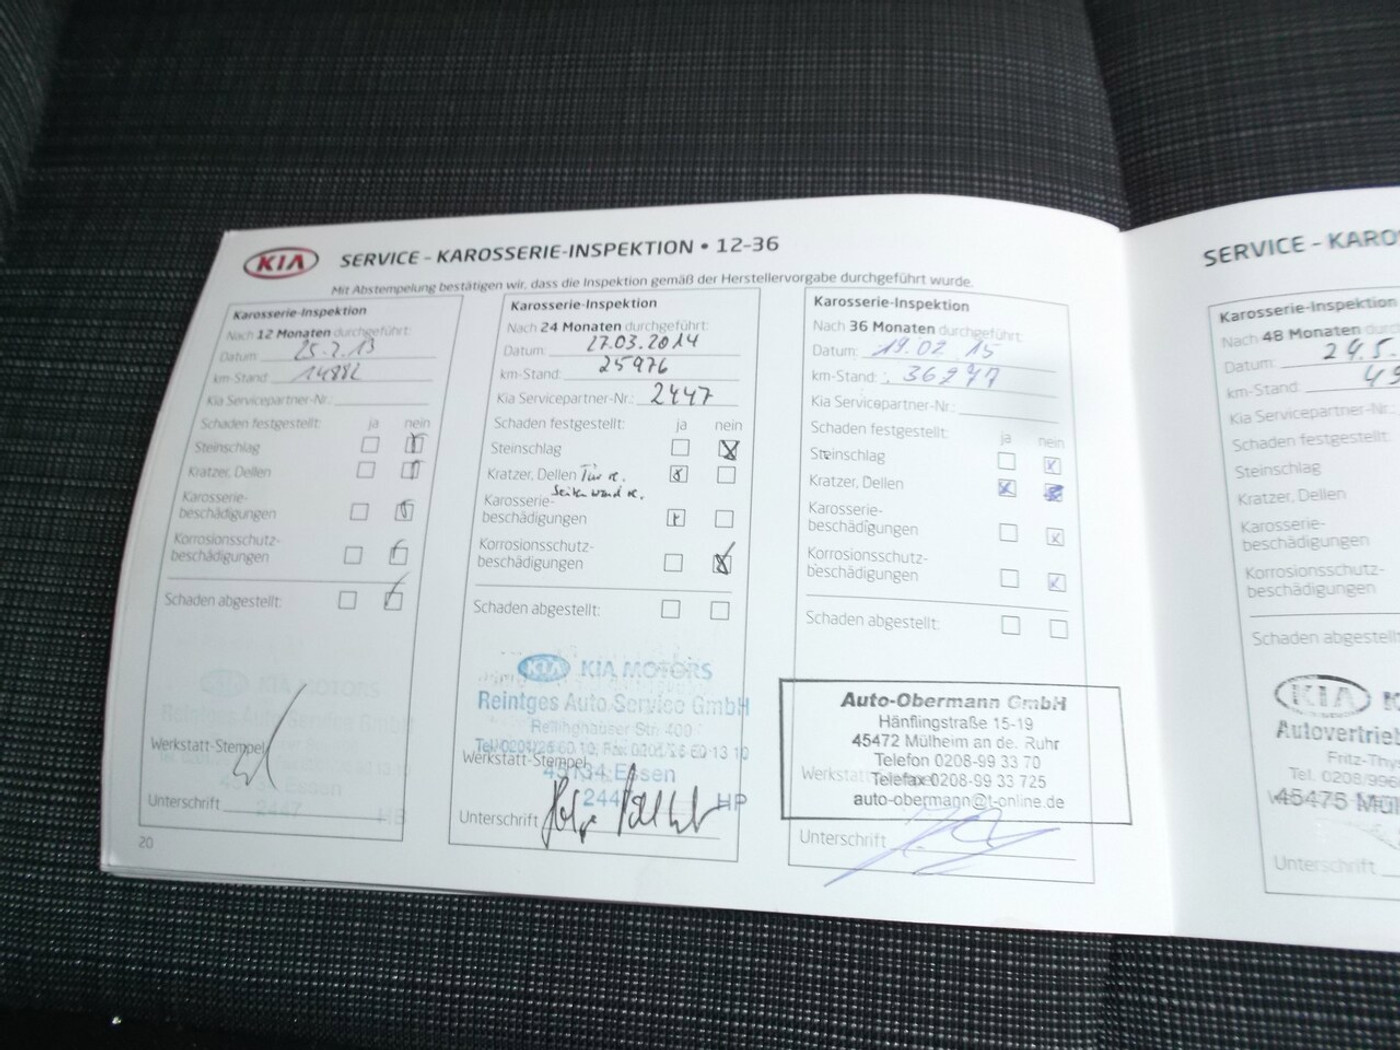 KIA SERVICE - KAROSSERIE-INSPEKTION • 12-36
Mit Abstempelung bestätigen wir, dass die Inspektion gemäß der Herstellervorgabe durchgeführt wurde.
Karosserie-Inspektion
Nach 12 Monaten durchgeführt:
Datum: 25.2.13
km-Stand: 14882
Kia Servicepartner-Nr.:
Schaden festgestellt: ja nein
Steinschlag
Kratzer, Dellen
Karosserie-
beschädigungen
Korrosionsschutz-
beschädigungen
Schaden abgestellt:
KIA MOTORS
Reintges Auto Service GmbH
Werkstatt-Stempel
Essen
2447 HB
Unterschrift
20
Karosserie-Inspektion
Nach 24 Monaten durchgeführt:
Datum: 27.03.2014
km-Stand: 25976
Kia Servicepartner-Nr.: 2447
Schaden festgestellt: ja nein
Steinschlag
Kratzer, Dellen Tür re.
Seitenwand re.
Karosserie-
beschädigungen
Korrosionsschutz-
beschädigungen
Schaden abgestellt:
KIA KIA MOTORS
Reintges Auto Service GmbH
Rellinghauser Str. 400
Werkstatt-Stempel
45134 Essen
2447 HP
Unterschrift
Karosserie-Inspektion
Nach 36 Monaten durchgeführt:
Datum: 19.02 15
km-Stand: 36277
Kia Servicepartner-Nr.:
Schaden festgestellt: ja nein
Steinschlag
Kratzer, Dellen
Karosserie-
beschädigungen
Korrosionsschutz-
beschädigungen
Schaden abgestellt:
Auto-Obermann GmbH
Hänflingstraße 15-19
45472 Mülheim an de. Ruhr
Telefon 0208-99 33 70
Telefax 0208-99 33 725
auto-obermann@t-online.de
Unterschrift
SERVICE - KARO
Karosserie-Inspektion
Nach 48 Monaten durch
Datum: 24.5.
km-Stand: 49
Kia Servicepartner-Nr.
Schaden festgestellt
Steinschlag
Kratzer, Dellen
Karosserie-
beschädigungen
Korrosionsschutz-
beschädigungen
Schaden abgestellt
KIA K
Autovertrieb
Fritz-Thys
Tel. 0208/996
45475 Mül
Unterschrift